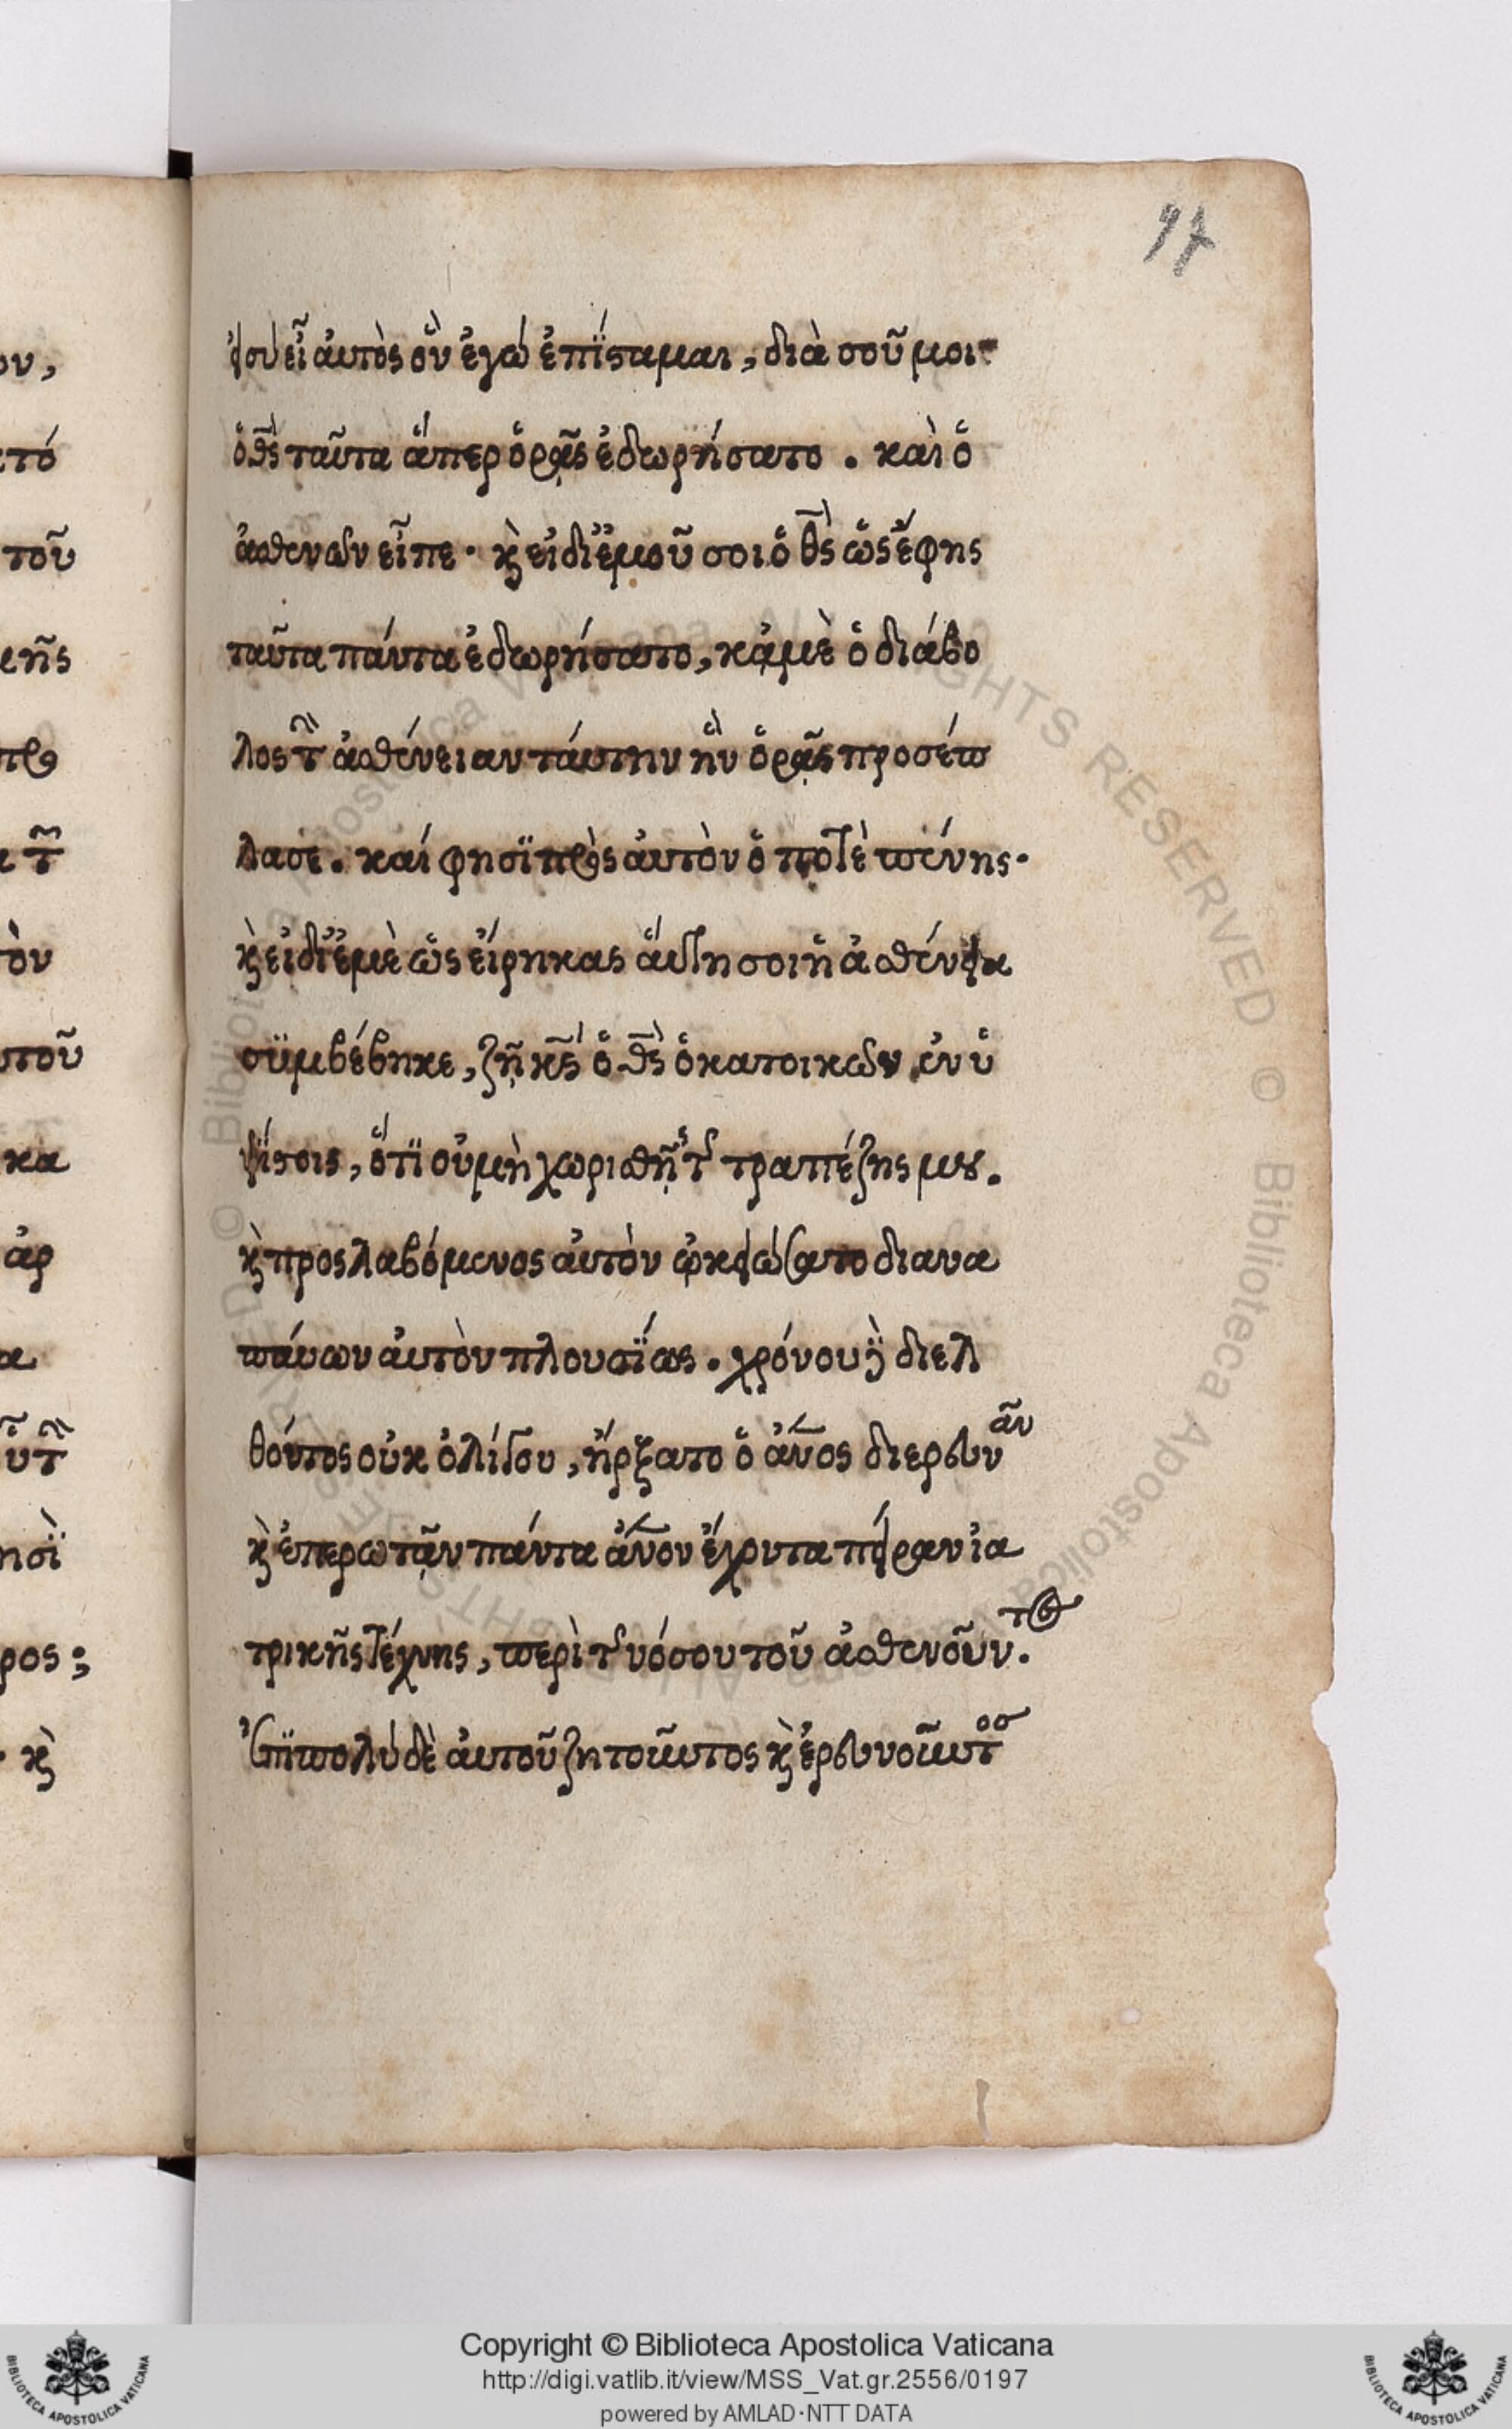 97
εἰ σὺ εἶ αὐτὸς ὃν ἐγὼ ἐπίσταμαι, διὰ σοῦ μοι
ὁ θς ταῦτα ἅπερ ὁρᾷς ἐδωρήσατο. καὶ ὁ
ἀσθενῶν εἶπε· κὶ εἰ δι ἐμοῦ σοι ὁ θς ὡς ἔφης
ταῦτα πάντα ἐδωρήσατο, κἀμὲ ὁ διάβο
λος τὴν ἀσθένειαν ταύτην ἣν ὁρᾷς προσέπ
λασε. καί φησϊ πρὸς αὐτὸν ὁ ποτὲ πένης·
κὶ εἰ δι ἐμὲ ὡς εἴρηκας αὕτη σοι ἡ ἀσθένεια
συμβέβηκε, ζῇ κς ὁ θς ὁ κατοικῶν ἐν ὑ
ψίστοις, ὅτϊ οὐ μὴ χωρισθῇς τῆς τραπέζης μου.
κὶ προσλαβόμενος αὐτὸν ᾠκειώσατο διανα
παύων αὐτὸν πλουσΐως. χρόνου δὲ διελ
θόντος οὐκ ὀλίγου, ἤρξατο ὁ ἄνος διερευνᾶν
κὶ ἐπερωτᾷν πάντα ἄνον ἔχοντα πεῖραν ἰα
τρικῆς τέχνης, περὶ τῆς νόσου τοῦ ἀσθενοῦντος.
Ἐπϊπολὺ δὲ αὐτοῦ ζητοῦντος κὶ ἐρευνοῦντος
ον,
τό
τοῦ
κα
ἀρ
α
ησϊ
ρος;
κὶ
Copyright © Biblioteca Apostolica Vaticana
http://digi.vatlib.it/view/MSS_Vat.gr.2556/0197
powered by AMLAD·NTT DATA